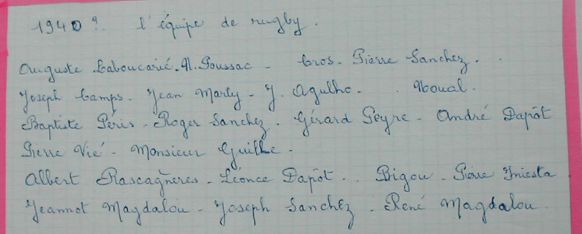 1940 ? l'équipe de rugby.
Auguste Laboucarié. N. Poussac - Cros - Pierre Sanchez.
Joseph Camps - Jean Marty - J. Agulho. . Noual.
Baptiste Péris - Roger Sanchez. Gérard Peyre - André Dapôt
Pierre Vié - Monsieur Guilhe.
Albert Rascagnères - Léonce Dapôt. Bigou - Pierre Iniesta
Jeannot Magdalou - Joseph Sanchez - René Magdalou.